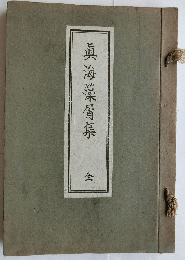 眞海藻屑集 全